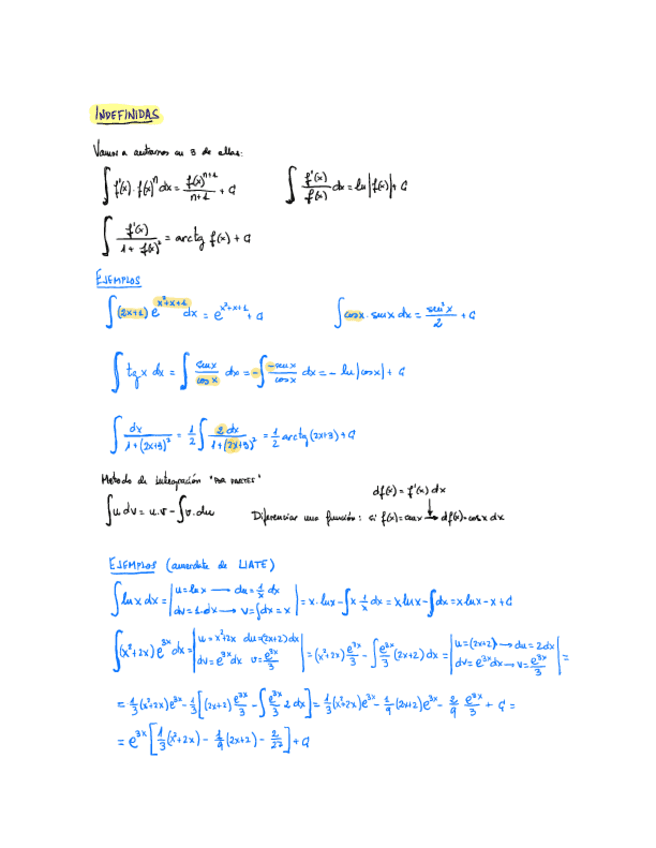 INDEFINIDAS
Vamos a centrarnos en 3 de ellas:
∫ f'(x)·f(x)^n dx = f(x)^(n+1)/(n+1) + C    ∫ f'(x)/f(x) dx = ln|f(x)| + C
∫ f'(x)/(1+f(x)²) = arctg f(x) + C
EJEMPLOS
∫(2x+1) e^(x²+x+1) dx = e^(x²+x+1) + C    ∫cosx · senx dx = sen²x/2 + C
∫ tgx dx = ∫ senx/cosx dx = -∫ -senx/cosx dx = -ln|cosx| + C
∫ dx/(1+(2x+3)²) = 1/2 ∫ 2dx/(1+(2x+3)²) = 1/2 arctg(2x+3) + C
Metodo de integración "POR PARTES"
df(x) = f'(x) dx
∫u dv = u.v - ∫v.du    Diferenciar una función: si f(x)=senx → df(x)=cosx dx
EJEMPLOS (acuerdate de LIATE)
∫lnx dx = |u=lnx → du=1/x dx
dv=1·dx → v=∫dx=x| = x·lnx - ∫x 1/x dx = xlnx - ∫dx = xlnx - x + C
∫(x²+2x)e^(3x) dx = |u=x²+2x du=(2x+2)dx
dv=e^(3x)dx v=e^(3x)/3| = (x²+2x) e^(3x)/3 - ∫ e^(3x)/3 (2x+2)dx = |u=(2x+2) → du=2dx
dv=e^(3x)dx → v=e^(3x)/3| =
= 1/3(x²+2x)e^(3x) - 1/3[(2x+2) e^(3x)/3 - ∫ e^(3x)/3 2dx] = 1/3(x²+2x)e^(3x) - 1/9(2x+2)e^(3x) - 2/9 e^(3x)/3 + C =
= e^(3x)[1/3(x²+2x) - 1/9(2x+2) - 2/27] + C